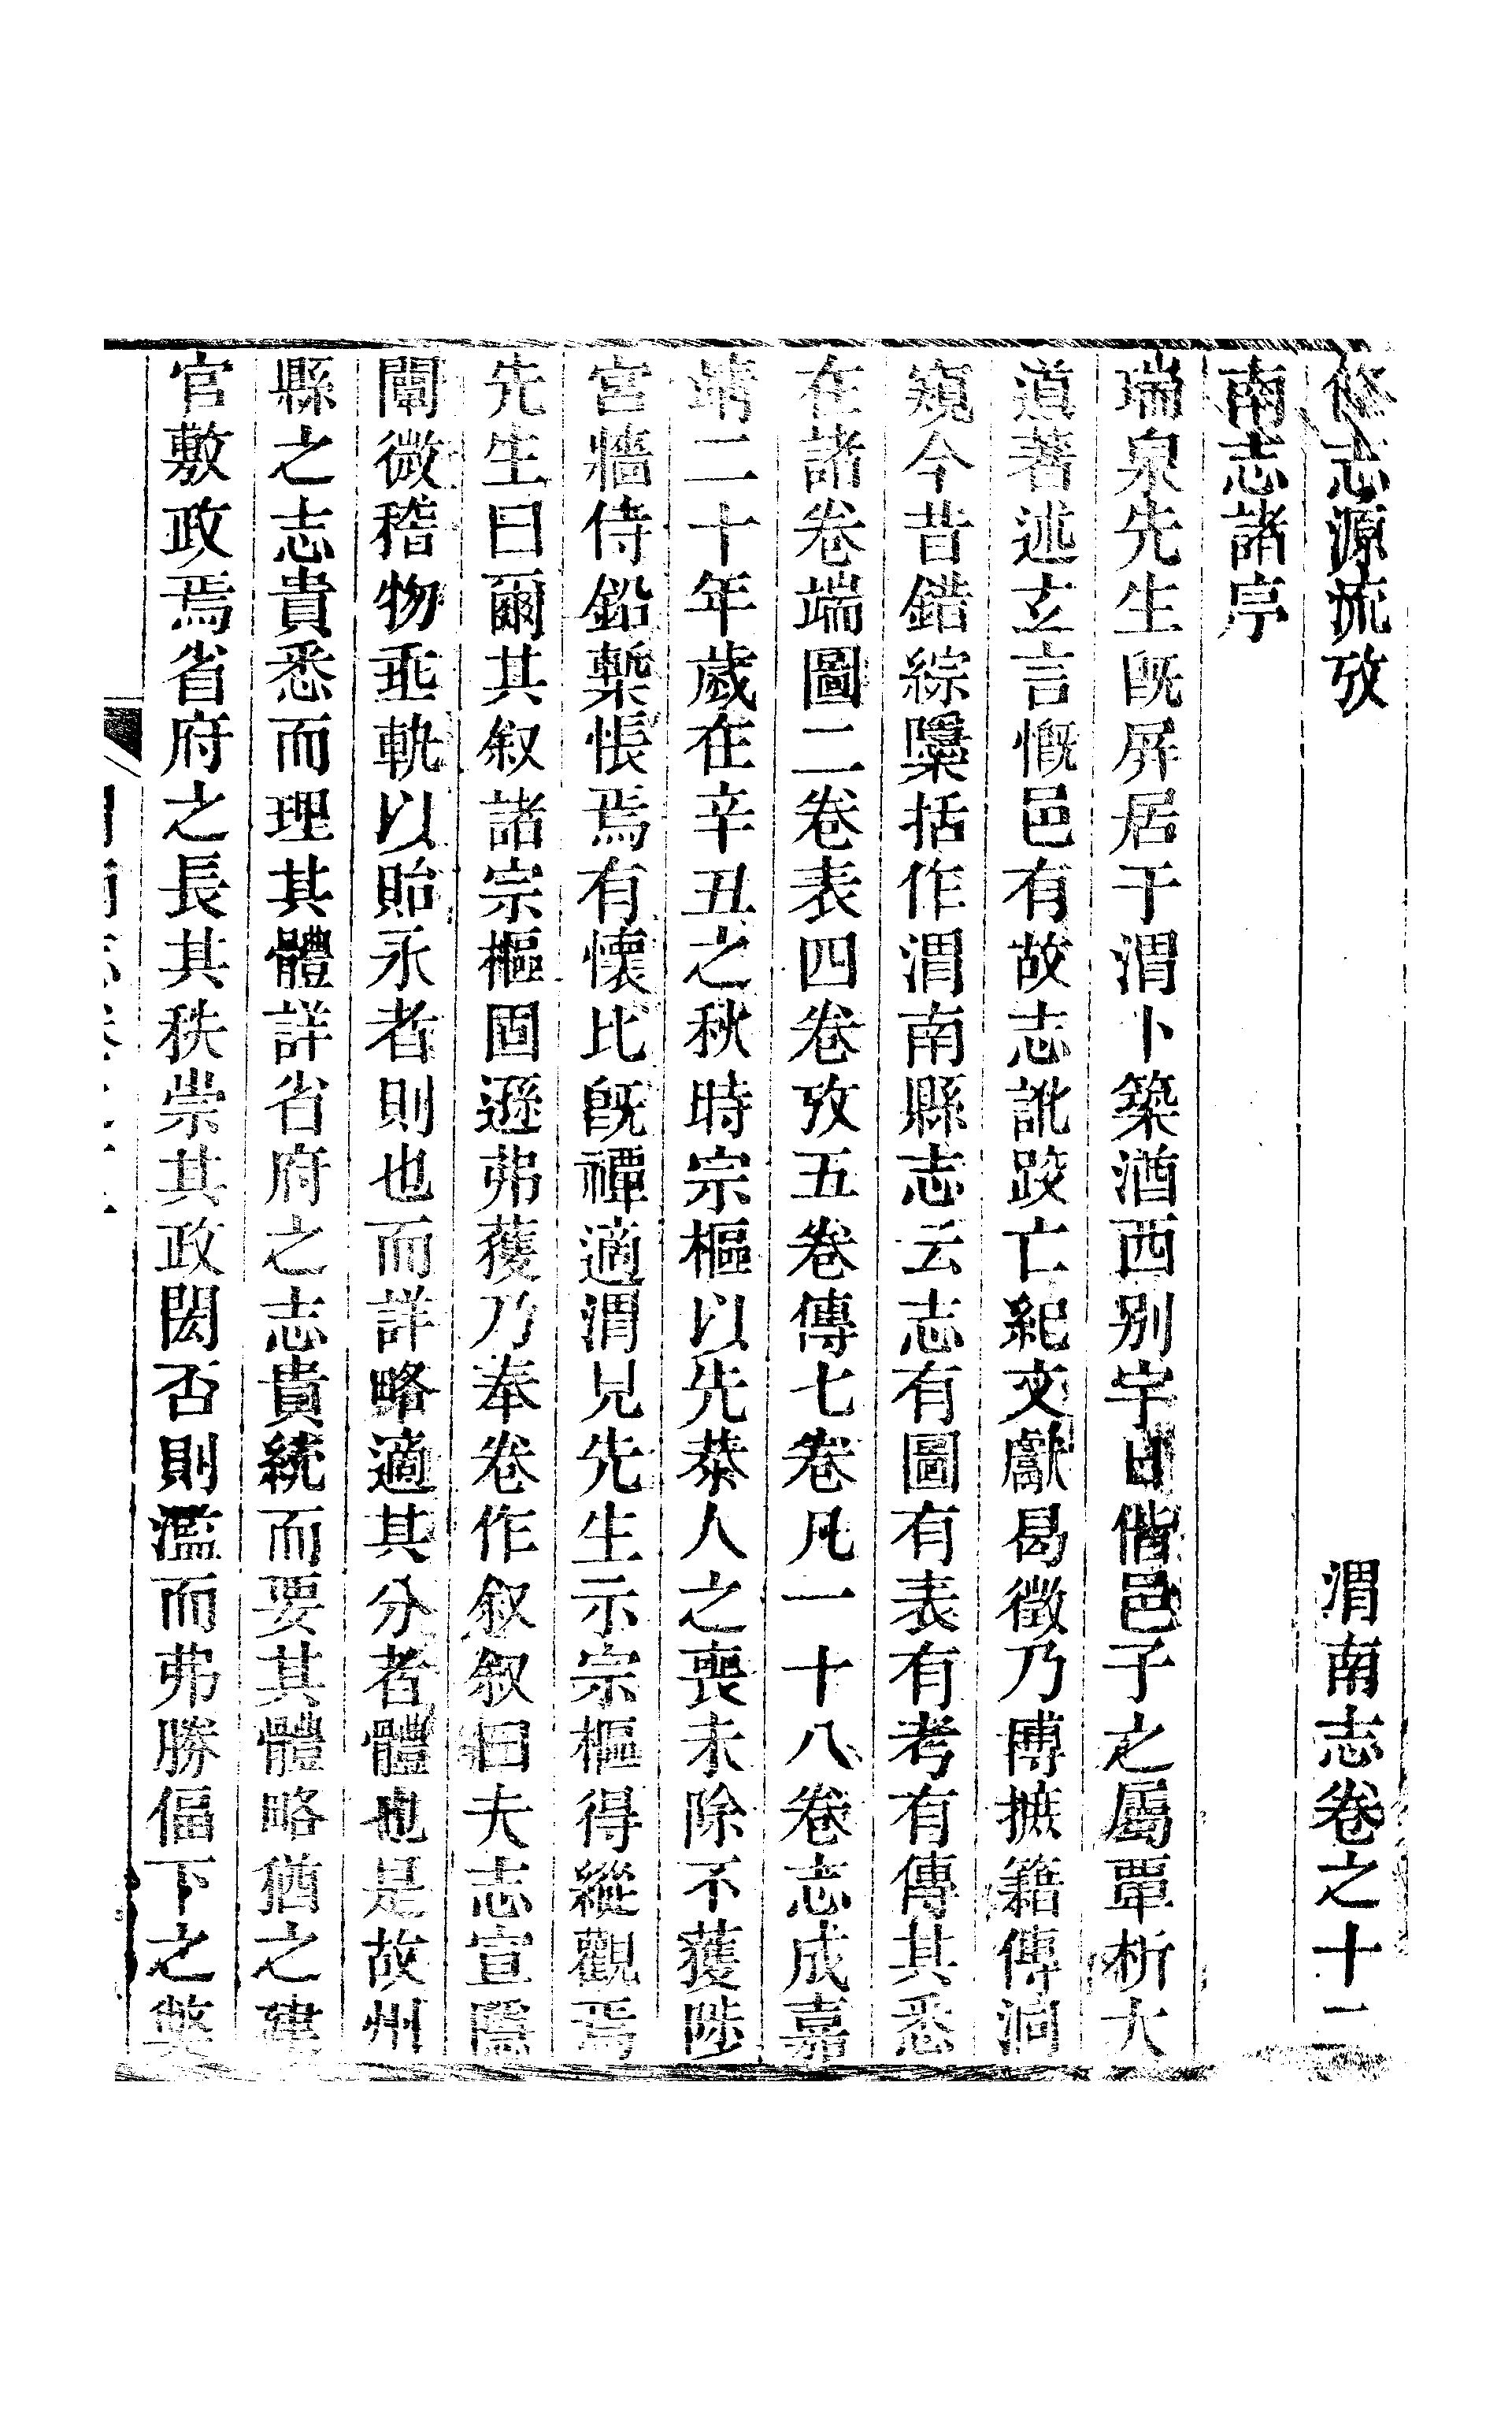 修志源流攷　渭南志卷之十二
南志諸序
瑞泉先生旣屏居于渭卜築湭西别字日偕邑子之屬覃析大
道著述玄言慨邑有故志訛跤亡紀文獻曷徵乃博摭籍傳洞
窺今昔錯綜檃括作渭南縣志云志有圖有表有考有傳其悉
在諸卷端圖二卷表四卷攷五卷傳七卷凡一十八卷志成嘉
靖二十年歲在辛丑之秋時宗樞以先恭人之喪未除不獲陟
宮牆侍鉛槧悵焉有懷比旣禫適渭見先生示宗樞得縱觀焉
先生曰爾其叙諸宗樞固遜弗獲乃奉卷作叙叙曰夫志宣隱
闡微稽物垂軌以貽永者則也而詳略適其分者體也是故州
縣之志貴悉而理其體詳省府之志貴統而要其體略猶之建
官敷政焉省府之長其秩崇其政閎否則濫而弗勝偪下之獘